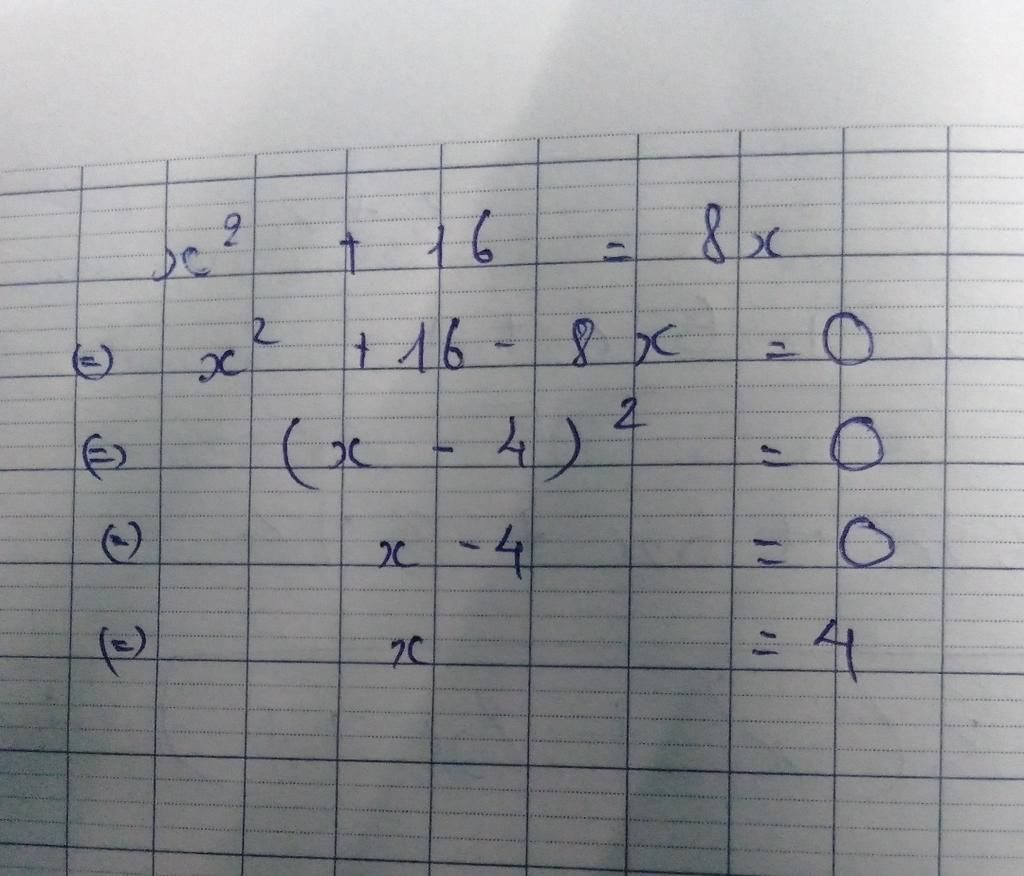 x² + 16 = 8x
(=) x² + 16 - 8x = 0
(=) (x - 4)² = 0
(=) x - 4 = 0
(=) x = 4